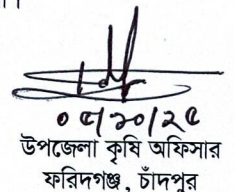 ০৫/১০/২৫
উপজেলা কৃষি অফিসার
ফরিদগঞ্জ, চাঁদপুর